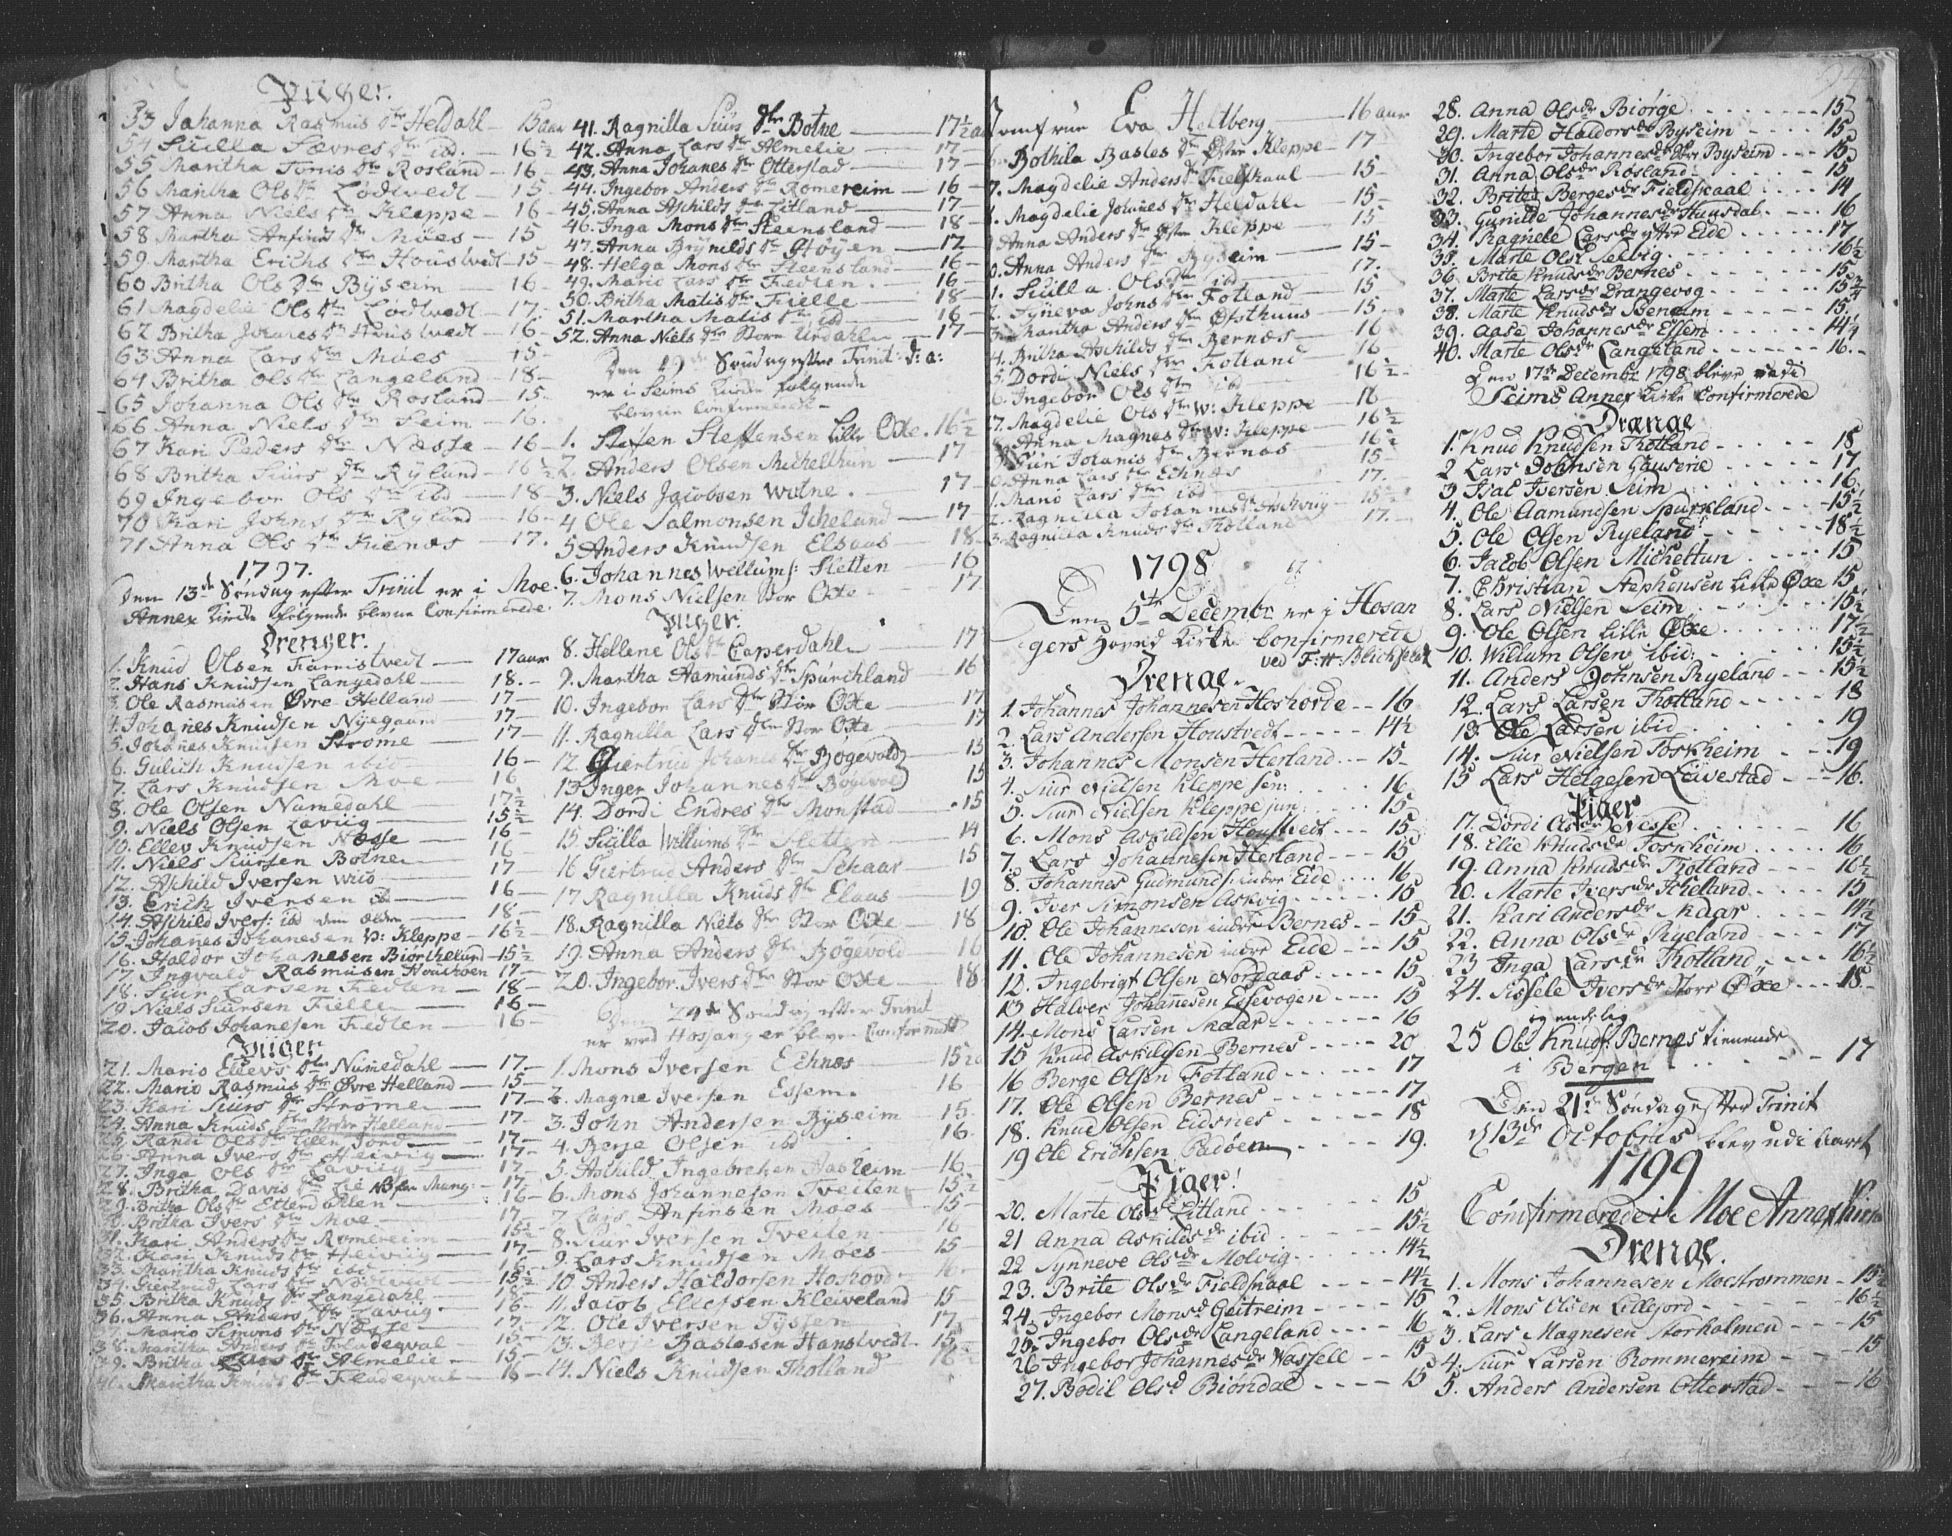 Piiger.
53 Johanna Rasmus dtr Heldahl — 15 aar
54 Siilla Sævres dtr ibd. — 16½
55 Maritha Tonis dtr Rosland — 16 —
56 Maritha Ols dtr Lødtvedt 15
57 Anna Niels dtr Kleppe — 16 —
58 Martha Anfinds dtr Moes — 15
59 Martha Erichs dtr Houstvedt — 15 —
60 Britha Ols dtr Byseim 16 —
61 Magdelie Ols dtr Lødtvedt — 17.
62 Britha Johanes dtr Houstvedt — 16 —
63 Anna Lars dtr Moes — 15 —
64 Britha Ols dtr Langeland — 18 —
65 Johanna Ols dtr Rosland — 15.
66 Anna Niels dtr Seim — 16.
67 Kari Peders dtr Næsse — 16 —
68 Britha Siurs dtr Ryland — 16½
69 Ingebor Ols dtr ibd — 18 —
70 Kari Johns dtr Ryland — 16 —
71 Anna Ols dtr Kienæs — 17.
1797.
Den 13de Søndag efter Trinit er i Moe
Annex Kirke følgende blevne Confirmerede.
Drenger.
1. Knud Olsen Farristvedt — 17 aar
2. Hans Knudsen Langedahl — 18. —
3. Ole Rasmusen Øvre Helland — 17 —
4. Johanes Knudsen Nyegaard — 17 —
5. Johanes Knudsen Strøme — 17 —
6. Gulich Knudsen ibid — 16 —
7. Lars Knudsen Moe — 16
8. Ole Olsen Numedahl 17½
9. Niels Olsen Laviig — 15½
10. Ellev Knudsen Næsse 16 —
11. Niels Siursen Botne 16
12. Aschild Iversen Wiio — 17 —
13. Erich Iversen ib — 16 —
14. Aschild Ivers: ibd den ældre — 18 —
15. Johanes Johanesen V: Kleppe — 16½
16. Haldor Johanesen Biørchelund — 15½
17. Ingvald Rasmusen Houchoen 17 —
18. Siur Larsen Fedten — 18 —
19. Niels Siursen Fielle — 16 —
20. Jacob Johanesen Fedten — 16 —
Piiger
21. Mario Ellevs dtr Numedahl — 17 —
22. Mario Rasmus dtr Øvre Helland — 15 —
23. Kari Siurs dtr Strøme — 17 —
24. Anna Knuds dtr Nedre Helland — 17.
25. Randi Ols dtr Lille Ford — 17 —
26. Anna Ivers dtr Heiviig — 17 —
27. Inga Ols dtr Laviig — 17 —
28. Britha Davis dtr Lie NB fra Mang: — 17
29. Britha Ols dtr Etterdahlen — 16 —
30. Britha Ivers dtr Moe — 17
31. Kari Anders dtr Romereim — 15½
32. Kari Knuds dtr Heiviig — 17 —
33. Maritha Knuds dtr ibd — 16 —
34. Giertrud Lars dtr Nødtvedt — 15½
35. Britha Knuds dtr Langedahl — 16 —
36. Anna Anders dtr Laviig — 17.
37. Mario Simons dtr Næsse — 15 —
38. Maritha Anders dtr Fladeqval —
39. Britha Lars dtr Almelie — 15 —
40. Maritha Knuds dtr Fladeqval — 16 —
41. Ragnilla Siurs dtr Botne — 17½ aar
42. Anna Lars dtr Almelie — 17 —
43. Anna Johanes dtr Otterstad — 17 —
44. Ingebor Anders dtr Romereim — 16 —
45. Anna Aschilds dtr Litland — 17
46. Inga Mons dtr Steensland — 18 —
47. Anna Brynilds dtr Høyen — 17
48. Helga Mons dtr Steensland — 16 —
49. Mario Lars dtr Fedten. — 16 —
50. Britha Matis dtr Fielle — 18 —
51. Martha Matis dtr ibd — 16 —
52. Anna Niels dtr Store Urdahl — 17 —
Den 19de Søndag efter Trinit: d: a:
er i Seims Kirke følgende
blevne Confirmerede —
1. Steffen Steffensen Lille Oxe. 16½
2. Anders Olsen Michelthun — 17
3. Niels Jacobsen Votne. — 17 —
4 Ole Salmonsen Icheland — 17
5 Anders Knudsen Elsaas — 18 —
6. Johannes Wellums: Sletten — 16
7. Mons Nielsen Stor Oxe — 17
Piiger.
8. Hellene Ols dtr Caperdahl — 17
9. Martha Aamunds dtr Spurchland — 16
10. Ingebor Lars dtr Stor Oxe — 17
11. Ragnilla Lars dtr Stor Oxe — 17
12 Giertrud Johanes dtr Bøgevold — 15
13 Inger Johannes dtr Bøgevold 15
14. Dordi Endres dtr Monstad — 15
15. Siilla Willums dtr Sletten — 14
16 Giertrud Anders dtr Schaar — 15
17 Ragnilla Knuds dtr Elaas 19
18. Ragnilla Niels dtr Stor Oxe — 18
19. Anna Anders dtr Bøgevold — 16
20. Ingebor Ivers dtr Stor Oxe — 18
Den 24de Søndag efter Trinit
er ved Hosanger bleven Confirmert
1. Mons Iversen Echnæs — 15½ a
2. Magne Iversen Essem. 16
3. John Andersen Byseim 15.
4. Berje Olsen ibd 16.
5. Aschild Ingebrehen Aasheim — 16
6. Mons Johannesen Tveiten — 15½
7. Lars Anfinsen Moes — 15 —
8. Siur Iversen Tveiten 16
9. Lars Knudsen Moes 15
10. Anders Haldorsen Hoshovd 16.
11. Jacob Ellefsen Kleiveland — 15
12. Ole Iversen Tyssen — 17.
13. Berje Baslesen Hanstvedt — 15½
14. Niels Knudsen Thotland 16½
Jomfrue Eva Heltberg — 16 aar
6. Bothila Basles dtr Øster Kleppe — 17
7. Magdelie Anders dtr Fielskaal — 15 —
8. Magdelie Johanes dtr Heldahl — 15 —
9. Anna Anders dtr Øster Kleppe — 15
10. Anna Anders dtr Byseim — 15 —
1. Siilla Ols dtr ibd — 17.
2. Synneva Johns dtr Fotland — 15
3. Maritha Anders dtr Østhuus — 15 —
4. Britha Aschilds dtr Bernæs — 16
5. Dordi Niels dtr Fotland 16
6. Ingebor Ols dtr ibd — 16½ —
7. Magdelie Ols dtr W: Kleppe — 16
8. Anna Magnes dtr W: Kleppe — 16½
9. Siiri Johanis dtr Bernæs — 16½
0. Anna Lars dtr Echnæs 15 —
1. Mario Lars dtr ibd — 17.
2. Ragnilla Johannes dtr Aschviig 15½
3. Ragnilla Knuds dtr Thotland — 17.
1798
Den 5te Decembr er i Hosan
gers Hoved Kirke Confirmerede
ved F: H: Blichfeldt
Drenge.
1. Johannes Johannesen Hoshovde — 16
2. Lars Andersen Houstvedt — 14½
3. Johannes Monsen Herland — 15 —
4. Siur Nielsen Kleppe sen: 16
5. Siur Nielsen Kleppe jun: 15
6. Mons Askildsen Houstvedt — 15
7. Lars Johannesen Herland — 15
8. Johannes Gudmunds: indre Eide 16
9. Iver Simonsen Askvig — 15
10. Ole Johannesen indre Bernes — 15
11. Ole Johannesen indre Eide — 15
12. Ingebrigt Olsen Nordaas — 15
13 Halver Johannesen Essevogen — 15
14. Mons Larsen Skaar — 16
15 Knud Askildsen Bernes — 20
16 Berge Olsen Fotland — 17
17. Ole Olsen Bernes — 17
18. Knud Olsen Eidsnes — 18
19 Ole Erichsen Padøen — 19.
Piger!
20. Marte Olsdr Litland — 15
21 Anna Askildsdr ibid — 15½
22 Synneve Olsdr Molvig — 14½
23. Brite Olsdr Fieldskaal — 14½
24. Ingebor Monsd Geitreim — 15
25. Ingebor Olsdr Langeland — 16
26 Ingebor Johannesdr Nassell — 15
27. Bodil Olsd Biøndal — 15
28. Anna Olsdr Biørge — 15
29. Marte Haldorsdr Byseim — 15
30. Ingebor Johannesdr Byseim — 15
31. Anna Olsdr Rosland — 15
32. Brita Bergesdr Fieldskaal — 14
33. Gurilde Johannesdr Huusdal — 16
34. Ragnele Larsdr ytre Eide — 17
35. Marte Olsd Selvig — 16½
36. Brite Knudsdr Bernes — 15
37. Marte Larsdr Drangevog — 15¾
38. Marte Knudsdr Iseneim — 15
39. Aase Johannesdr Essem — 14½
40. Marte Olsdr Langeland — 16. —
Den 17de Decembr 1798 bleve udi
Seims Annex Kirke Confirmerede
Drenge
1. Knud Knudsen Thotland — 18
2 Lars Johnsen Gauserie — 17
3 Isal Iversen Seim — 16
4. Ole Aamundsen Spurkland — 15½
5. Ole Olsen Ryeland — 18½
6. Jacob Olsen Micheltun — 15
7. Christian Stephensen Lille Oxe 15
8. Lars Nielsen Seim — 15½
9. Ole Olsen Lille Oxe — 17½
10. Willum Olsen ibid: — 15½
11. Anders Johnsen Ryeland — 15½
12. Lars Larsen Thotland — 18
13. Ole Larsen ibid — 19
14. Siur Nielsen Torkheim — 19
15 Lars Helgesen Leivestad — 16.
Piger
17. Dordi Asdr Nesse — 16
18. Elie Knudsdr Torkheim — 16
19. Anna Knudsdr Thotland — 16½
20. Marte Iversdr Icheland — 15
21. Kari Andersdr Skaar — 14½
22. Anna Olsdr Ryeland — 17
23 Inga Larsdr Thotland — 16½
24. Sissele Iversdr Store Oxe — 18 —
og endelig
25 Ole Knuds: Bernes tienende
i Bergen — 17
Den 21de Søndag efter Trinit
d 13de Octobris blev udi Aaret
1799
Confirmerede i Moe Annex Kirke
Drenge.
1. Mons Johannesen Moestrommen — 15½
2. Mons Olsen Lillefjord — 16½
3. Lars Magnesen Storholmen — 15
4. Siur Larsen Rommereim — 15
5. Anders Andersen Otterstad — 16